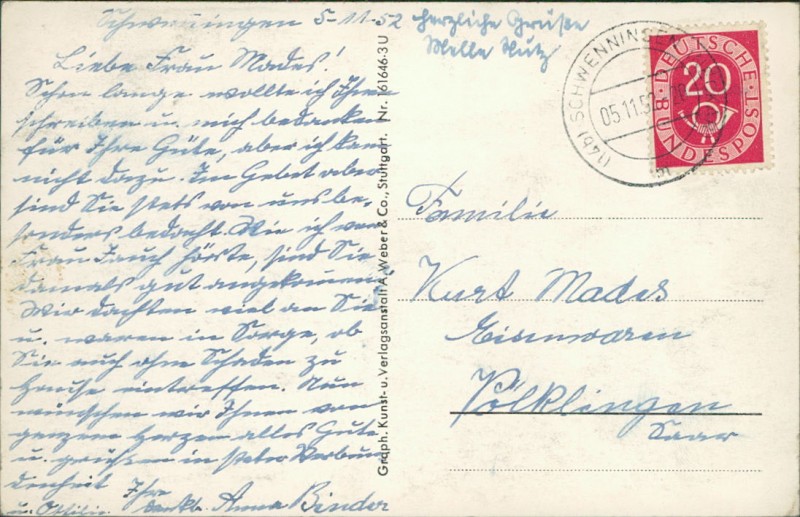 Schwenningen 5-11-52
Liebe Frau Mades!
Schon lange wollte ich Ihnen
schreiben u. mich bedanken
für Ihre Güte, aber ich kam
nicht dazu. Im Gebet aber
sind Sie stets von uns be-
sonders bedacht. Wie ich von
Frau Jauch hörte, sind Sie
damals gut angekommen.
Wir dachten viel an Sie
u. waren in Sorge, ob
Sie auch ohne Schaden zu
Hause eintreffen. Nun
wünschen wir Ihnen von
ganzem Herzen alles Gute
u. grüßen in steter Verbun
denheit Ihre
u. Ottilie dankb. Anna Binder
herzliche Grüße
Graph. Kunst- u. Verlagsanstalt A. Weber & Co., Stuttgart. Nr. 161646-3 U
(14b) SCHWENNINGEN
05.11.52
DEUTSCHE BUNDESPOST
20
Familie
Kurt Mades
Eisenwaren
Völklingen
Saar